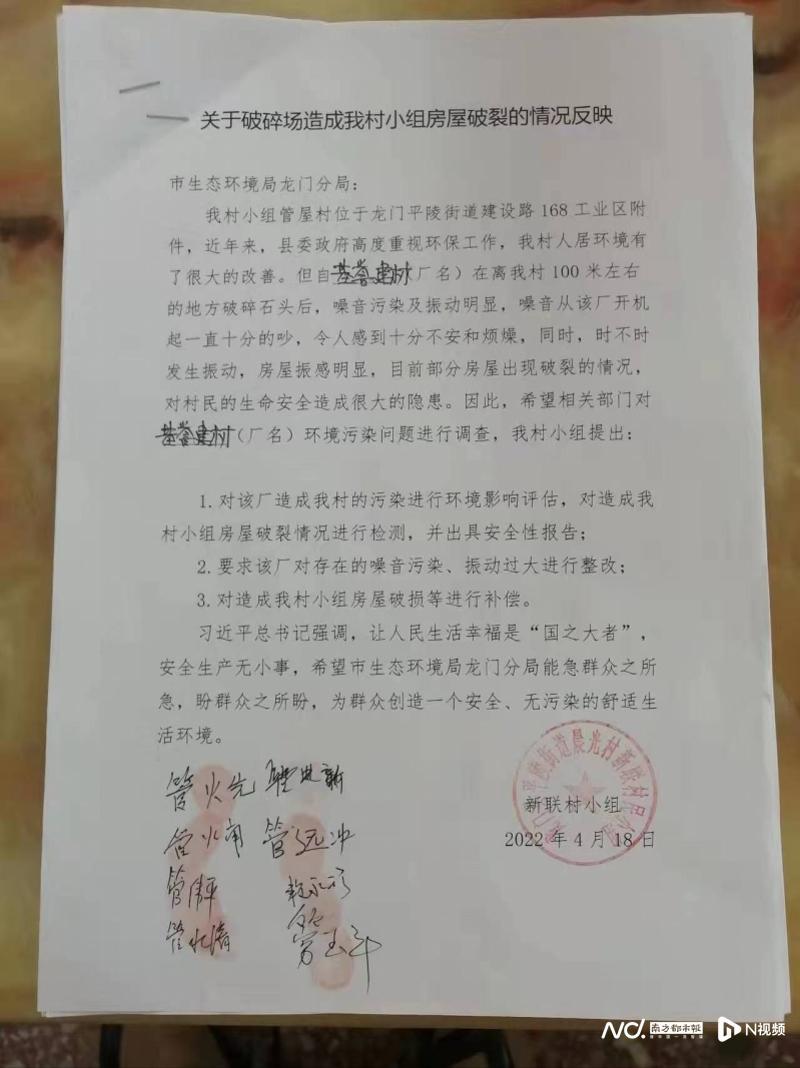 关于破碎场造成我村小组房屋破裂的情况反映
市生态环境局龙门分局：
我村小组管屋村位于龙门平陵街道建设路 168 工业区附
件，近年来，县委政府高度重视环保工作，我村人居环境有
了很大的改善。但自基誉建材（厂名）在离我村 100 米左右
的地方破碎石头后，噪音污染及振动明显，噪音从该厂开机
起一直十分的吵，令人感到十分不安和烦燥，同时，时不时
发生振动，房屋振感明显，目前部分房屋出现破裂的情况，
对村民的生命安全造成很大的隐患。因此，希望相关部门对
基誉建材（厂名）环境污染问题进行调查，我村小组提出：
1.对该厂造成我村的污染进行环境影响评估，对造成我
村小组房屋破裂情况进行检测，并出具安全性报告；
2.要求该厂对存在的噪音污染、振动过大进行整改；
3.对造成我村小组房屋破损等进行补偿。
习近平总书记强调，让人民生活幸福是“国之大者”，
安全生产无小事，希望市生态环境局龙门分局能急群众之所
急，盼群众之所盼，为群众创造一个安全、无污染的舒适生
活环境。
管火先
管远冲
管玉平
平陵街道晨光村新联村
新联村小组
2022 年 4 月 18 日
南方都市报
N视频